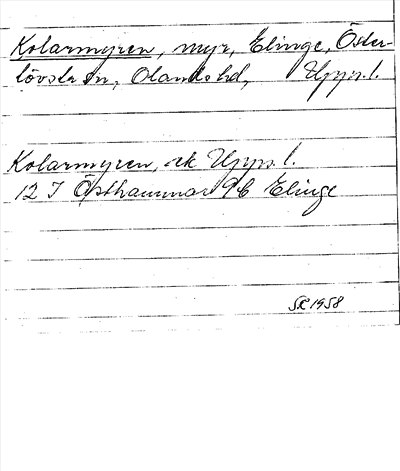 Kolarmyren, myr, Elinge, Öster-
lövsta sn, Olands hd, Upps. l.
Kolarmyren, ek Upps. l.
12 I Östhammar 9b Elinge
SR 1958